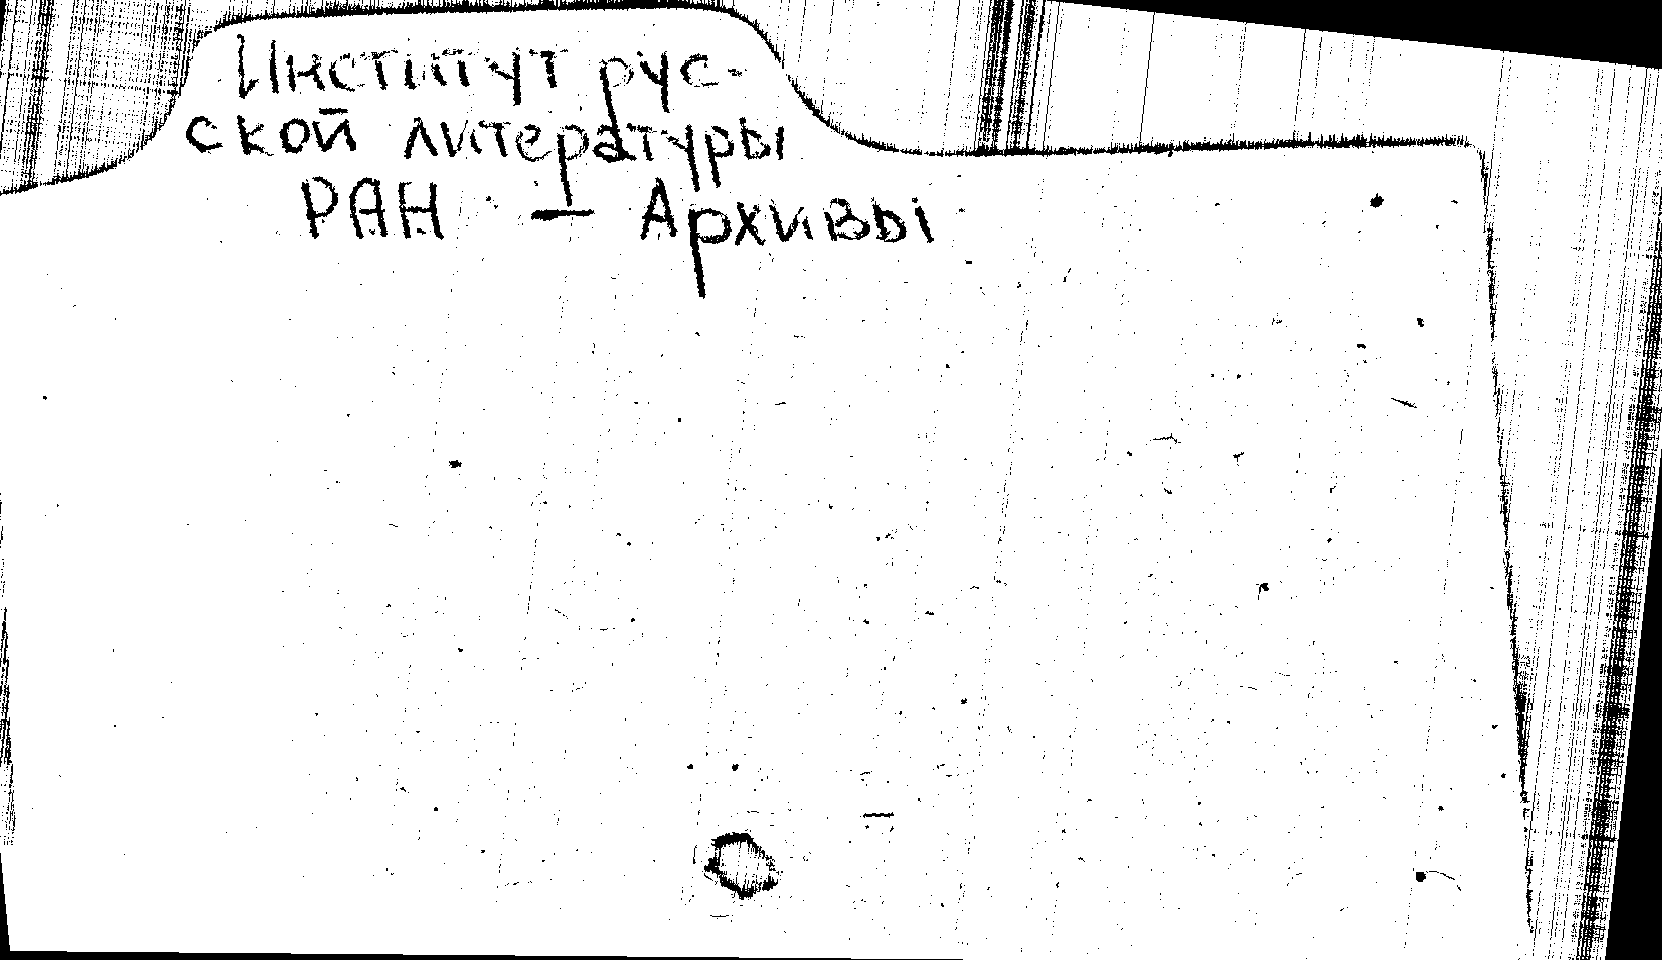 Институт рус-
ской литературы
РАН — Архивы